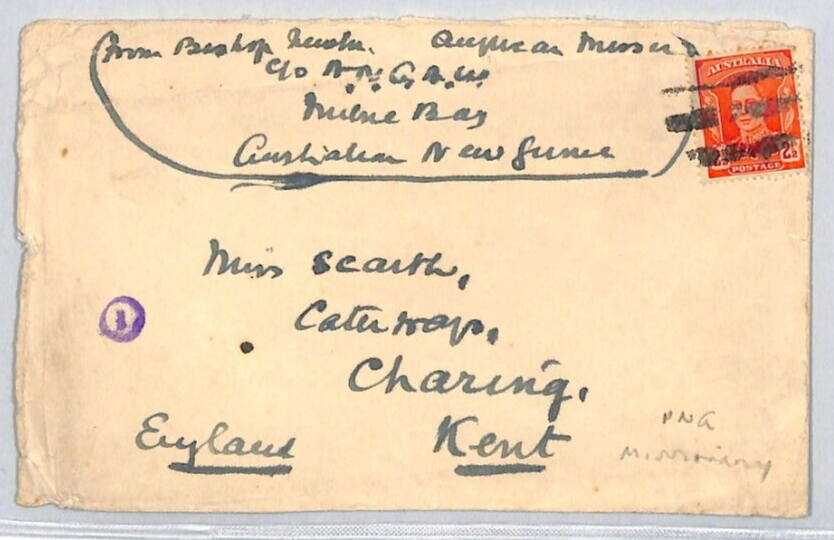 From Bishop Newton. Anglican Mission
c/o A.N.G.A.U.
Milne Bay
Australian New Guinea
AUSTRALIA
2½
POSTAGE
Miss Scarth,
1
Caterways,
Charing,
England Kent
PNG
Missionary